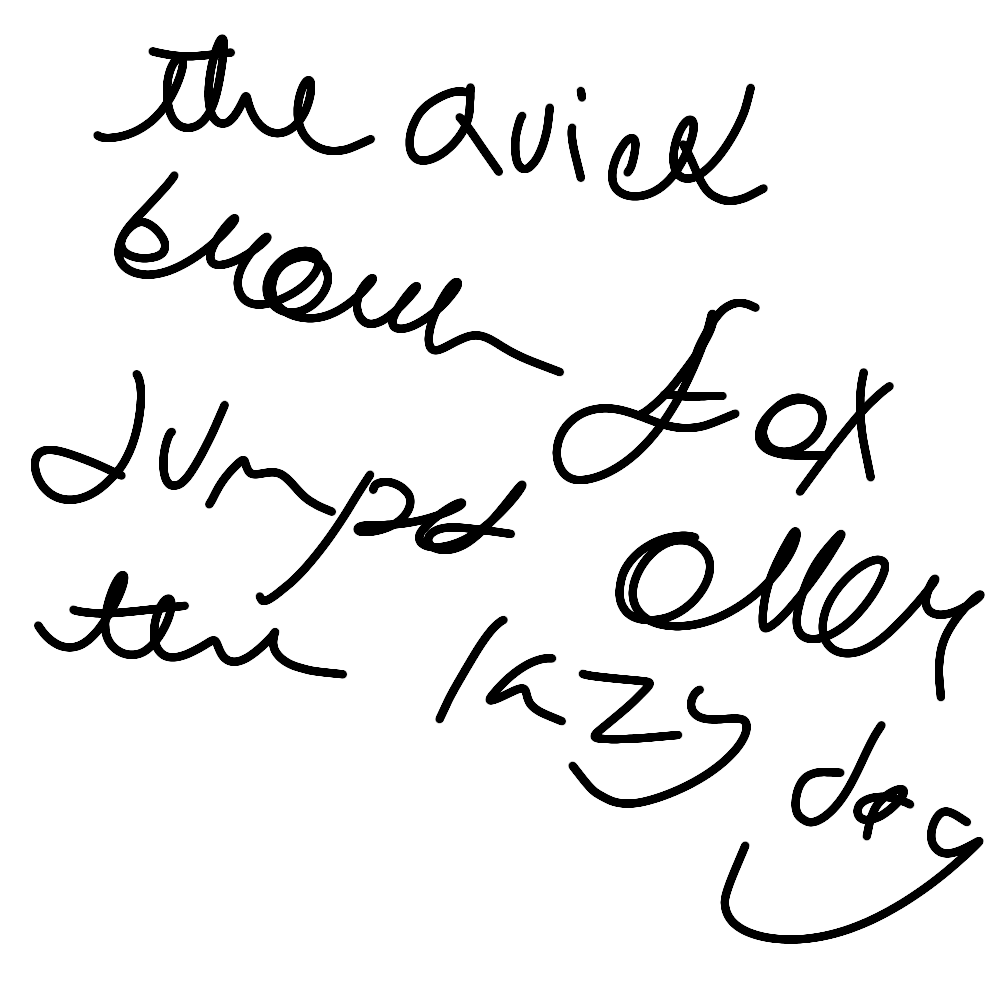 the quick
brown fox
jumped over
the lazy
dog